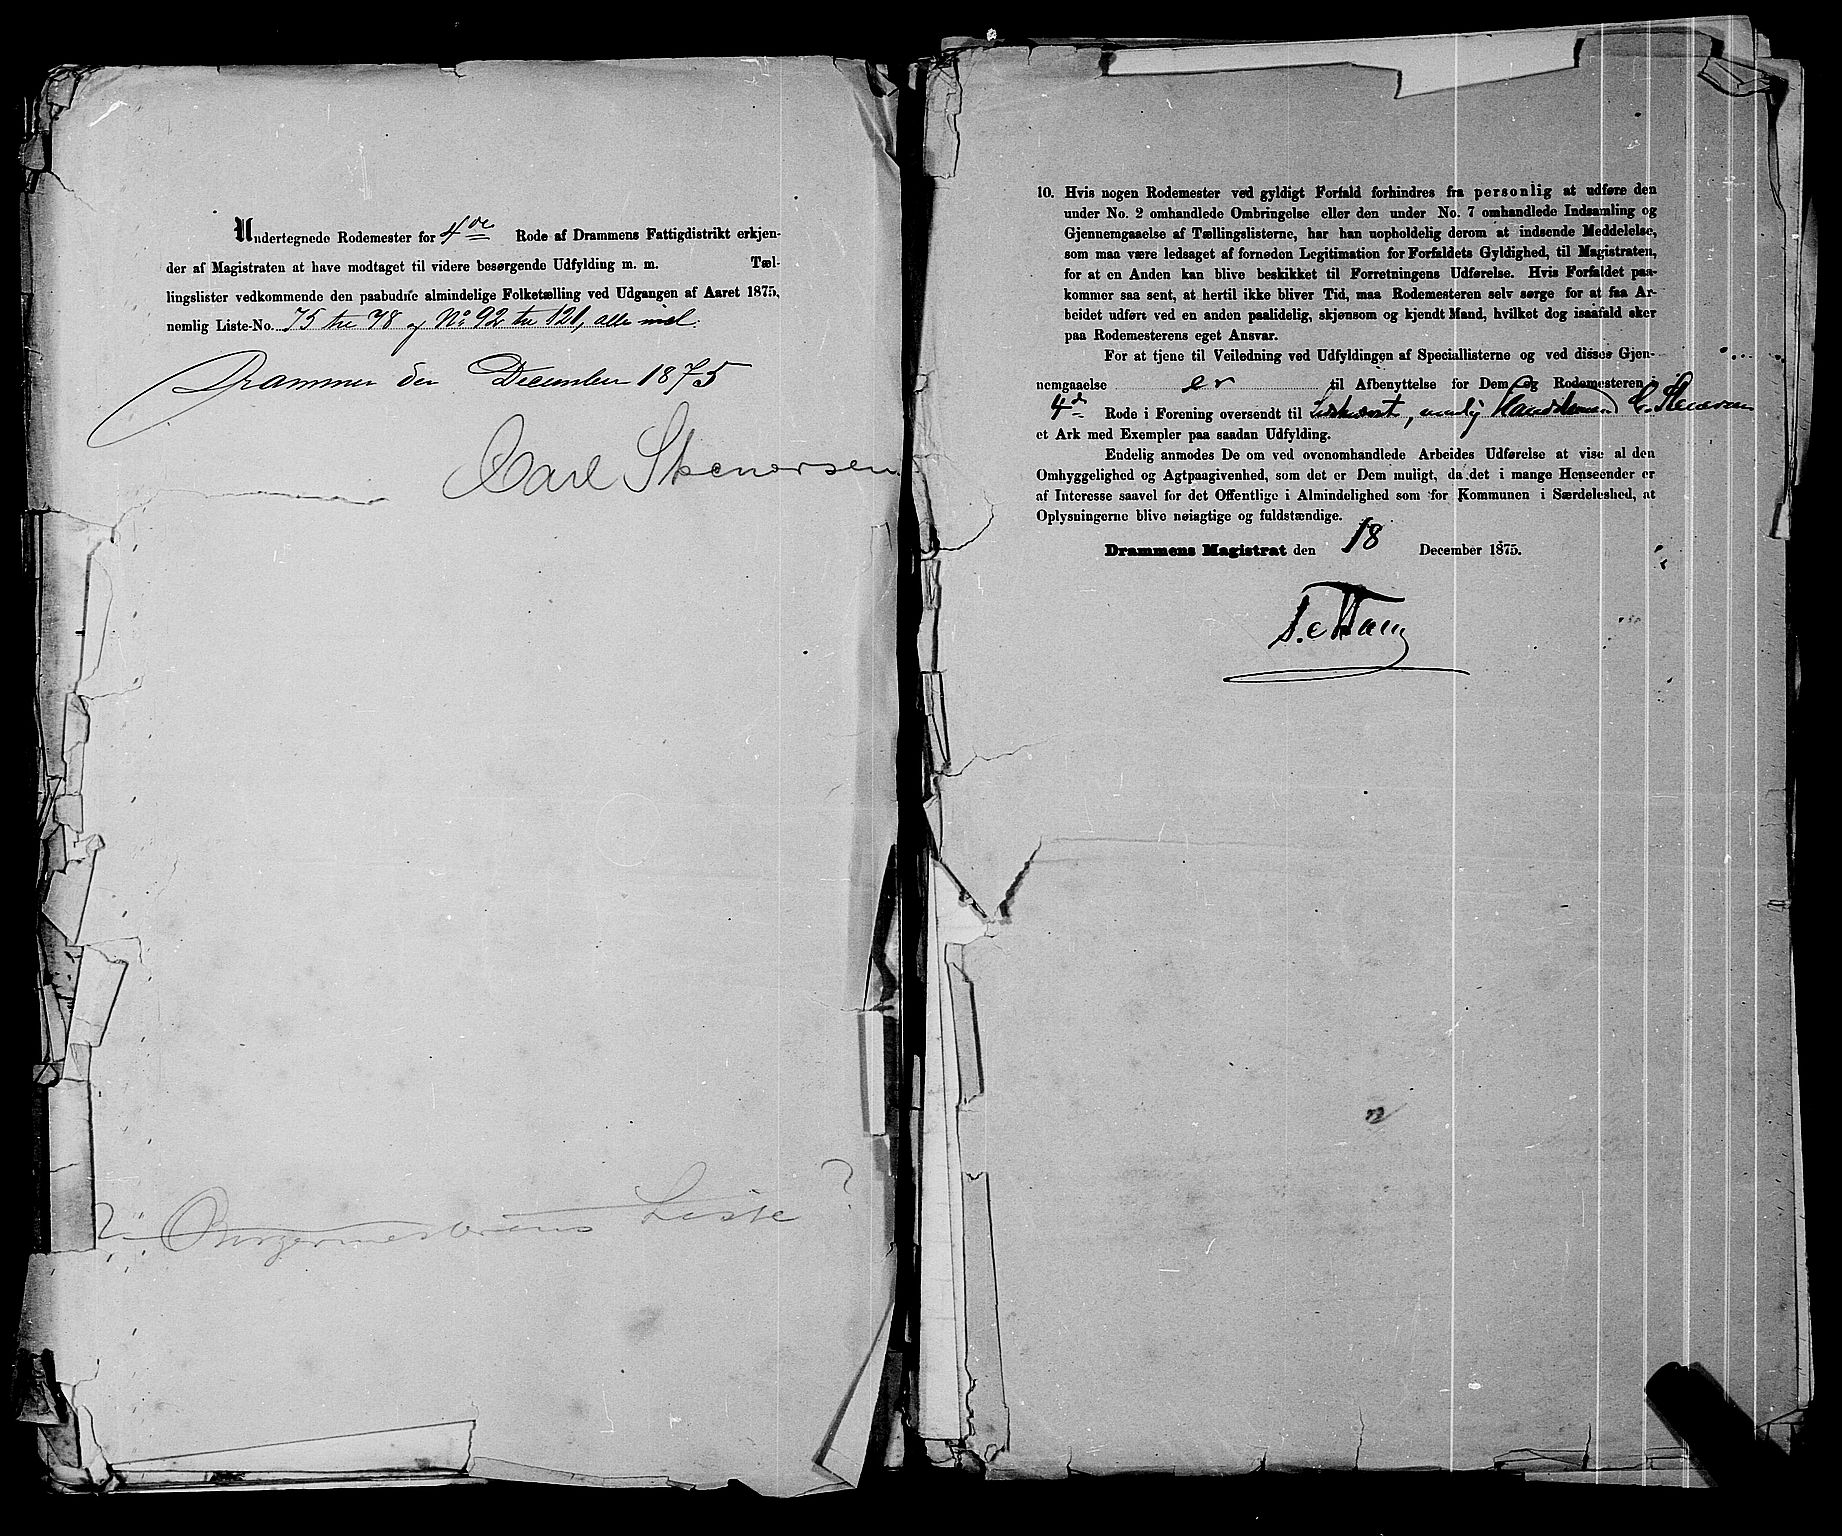 Undertegnede Rodemester for 4de Rode af Drammens Fattigdistrikt erkjen-
der af Magistraten at have modtaget til videre besørgende Udfylding m. m. Tæl-
lingslister vedkommende den paabudne almindelige Folketælling ved Udgangen af Aaret 1875,
nemlig Liste-No. 75 til 78 og No 92 til 121, alle incl.
Drammen den December 1875
Carl Stenersen
Borgermesterens Liste?
10. Hvis nogen Rodemester ved gyldigt Forfald forhindres fra personlig at udføre den
under No. 2 omhandlede Ombringelse eller den under No. 7 omhandlede Indsamling og
Gjennemgaaelse af Tællingslisterne, har han uopholdelig derom at indsende Meddelelse,
som maa være ledsaget af fornøden Legitimation for Forfaldets Gyldighed, til Magistraten,
for at en Anden kan blive beskikket til Forretningens Udførelse. Hvis Forfaldet paa-
kommer saa sent, at hertil ikke bliver Tid, maa Rodemesteren selv sørge for at faa Ar-
beidet udført ved en anden paalidelig, skjønsom og kjendt Mand, hvilket dog isaafald sker
paa Rodemesterens eget Ansvar.
For at tjene til Veiledning ved Udfyldingen af Speciallisterne og ved disses Gjen-
nemgaaelse er til Afbenyttelse for Dem og Rodemesteren i
4de Rode i Forening oversendt til , nemlig Handelsmand C. Stenersen
et Ark med Exempler paa saadan Udfylding.
Endelig anmodes De om ved ovenomhandlede Arbeides Udførelse at vise al den
Omhyggelighed og Agtpaagivenhed, som det er Dem muligt, da det i mange Henseender er
af Interesse saavel for det Offentlige i Almindelighed som for Kommunen i Særdeleshed, at
Oplysningerne blive nøiagtige og fuldstændige.
Drammens Magistrat den 18 December 1875.